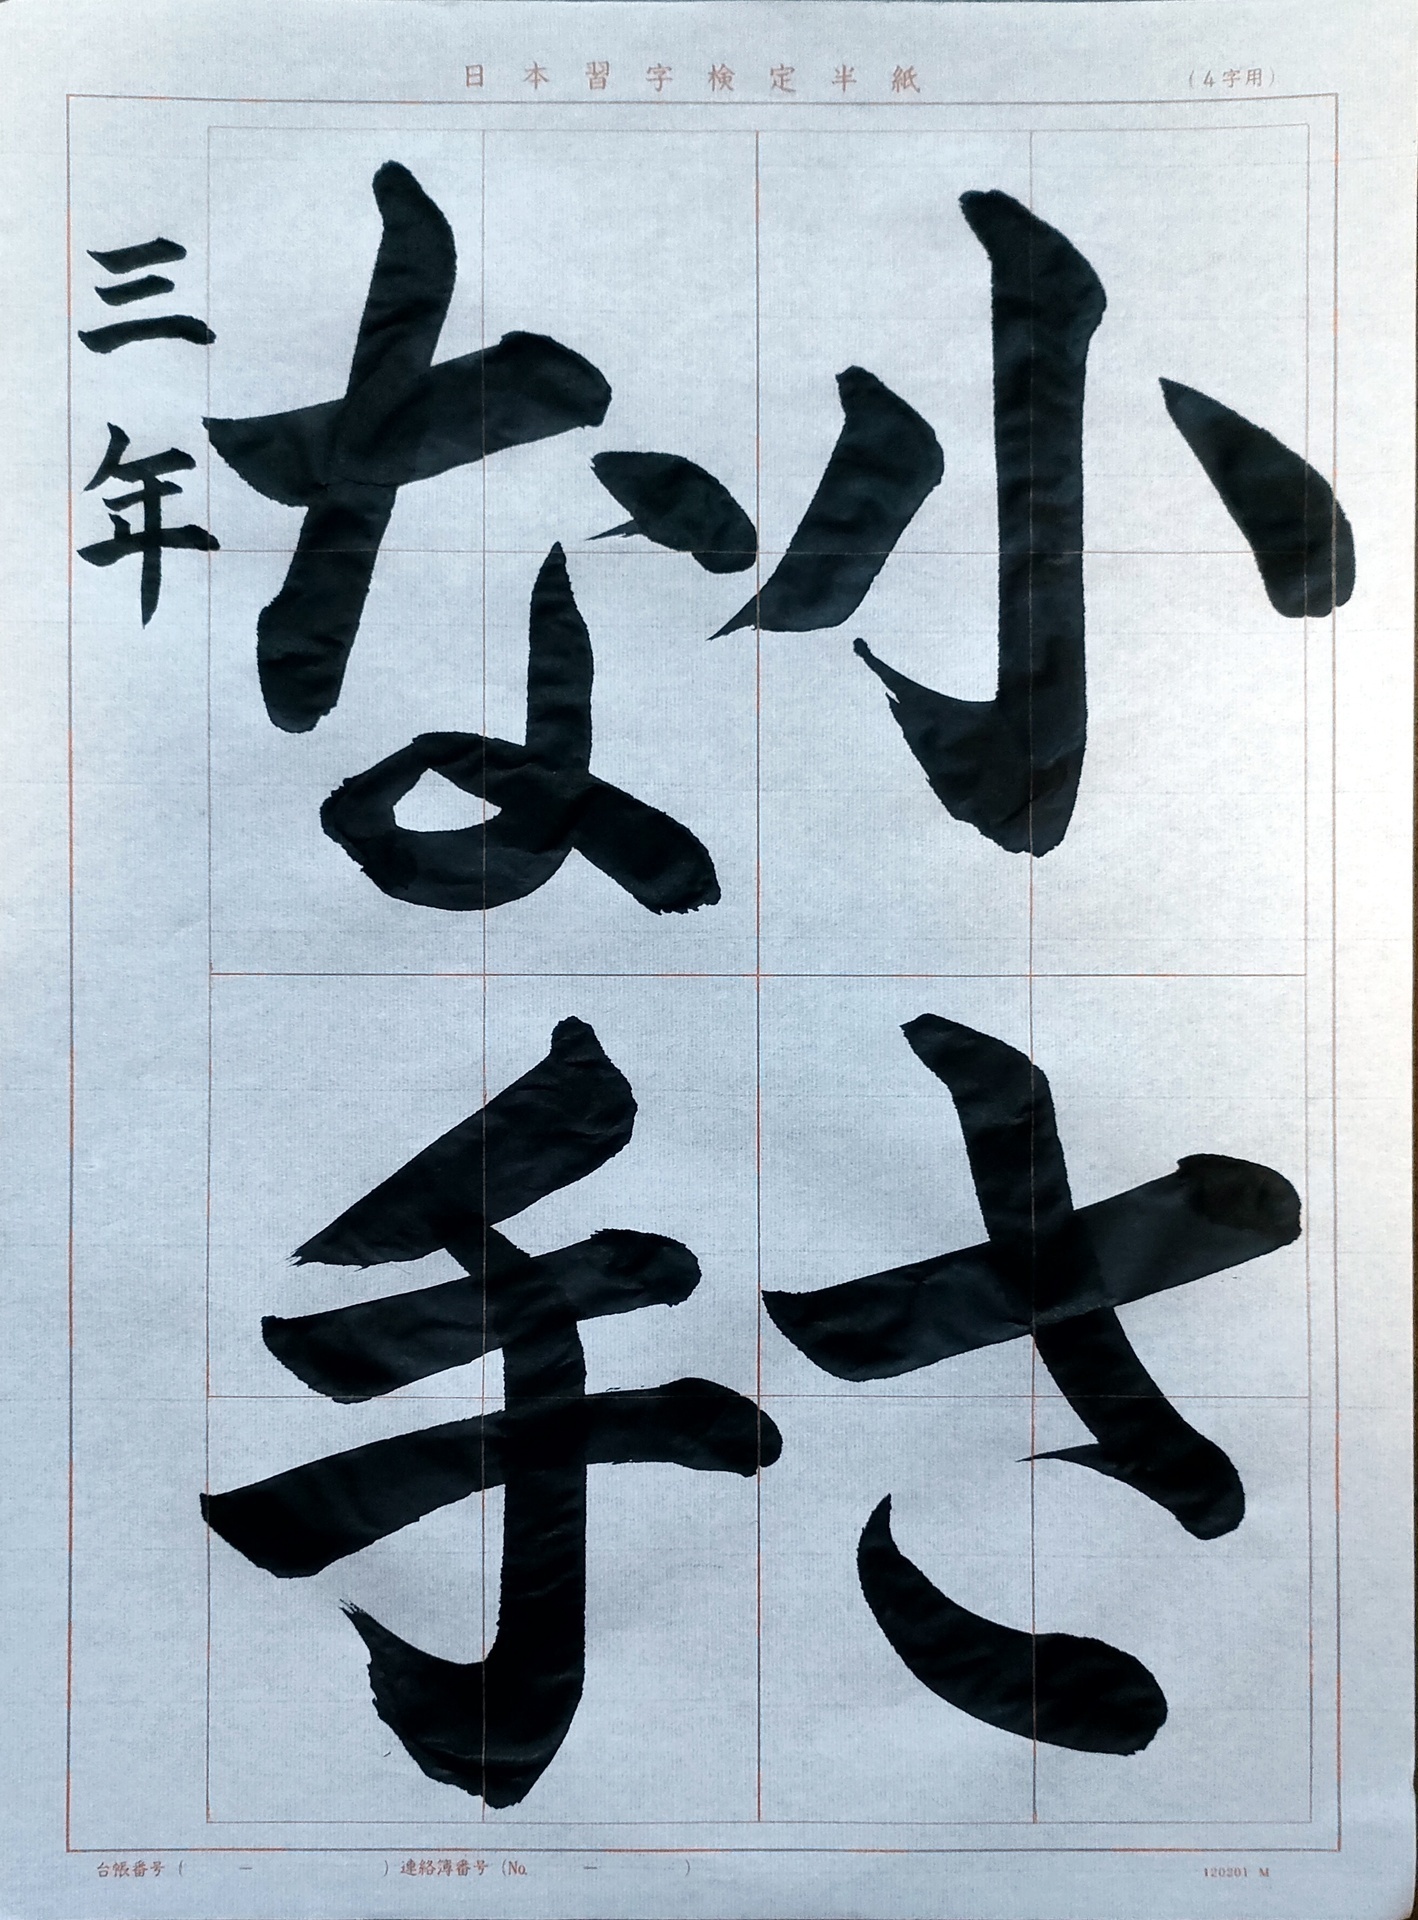 日本習字検定半紙
(4字用)
小さ
な手
三年
台帳番号(　　－　　)連絡簿番号(No.　　－　　)
120201 M